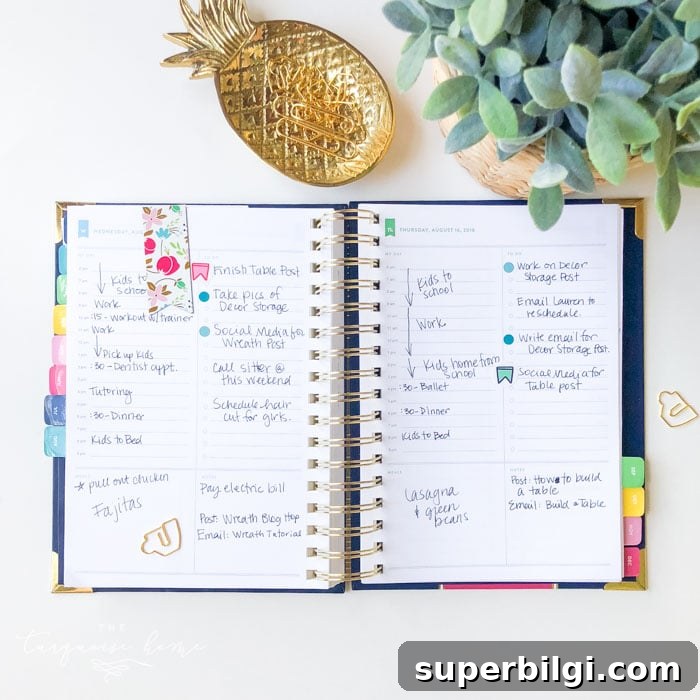 WEDNESDAY, AU
MY DAY
Kids to
school
Work
:15 - workout w/trainer
Work
Pick up kids
:30 - Dentist appt.
Tutoring
:30 - Dinner
Kids to Bed
Finish Table Post
Take pics of
Decor Storage
Social Media for
Wreath Post
Call sitter @
this weekend
Schedule hair
cut for girls.
* pull out chicken
Fajitas
NOTES
Pay electric bill
Post: Wreath Blog Hop
Email: Wreath Tutorial
THURSDAY, AUGUST 16, 2018
MY DAY
Kids to
school
Work
Kids home from
school
:30 - Ballet
:30 - Dinner
Kids to Bed
TO DO
Work on Decor
Storage Post
Email Lauren to
reschedule.
Write email for
Decor Storage Post.
Social Media for
Table post
MEALS
Lasagna
& green
beans
NOTES
Post: How to build
a table
Email: Build a Table
SEP
OCT
NOV
DEC
THE
turquoise home
superbilgi.com